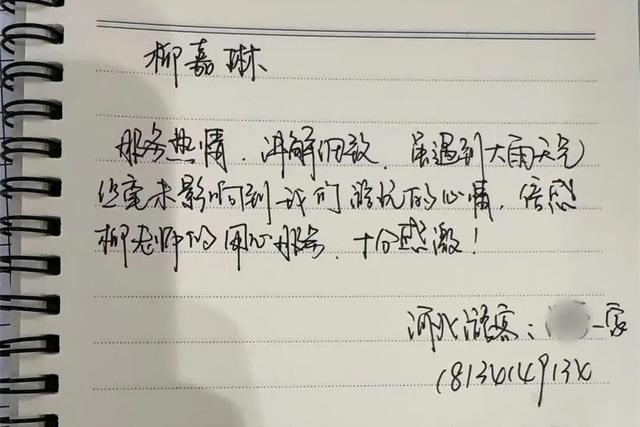 柳嘉琳
服务热情、讲解细致、虽遇到大雨天气
丝毫未影响到我们游玩的心情，倍感
柳老师的用心服务，十分感激！
河北游客：一家